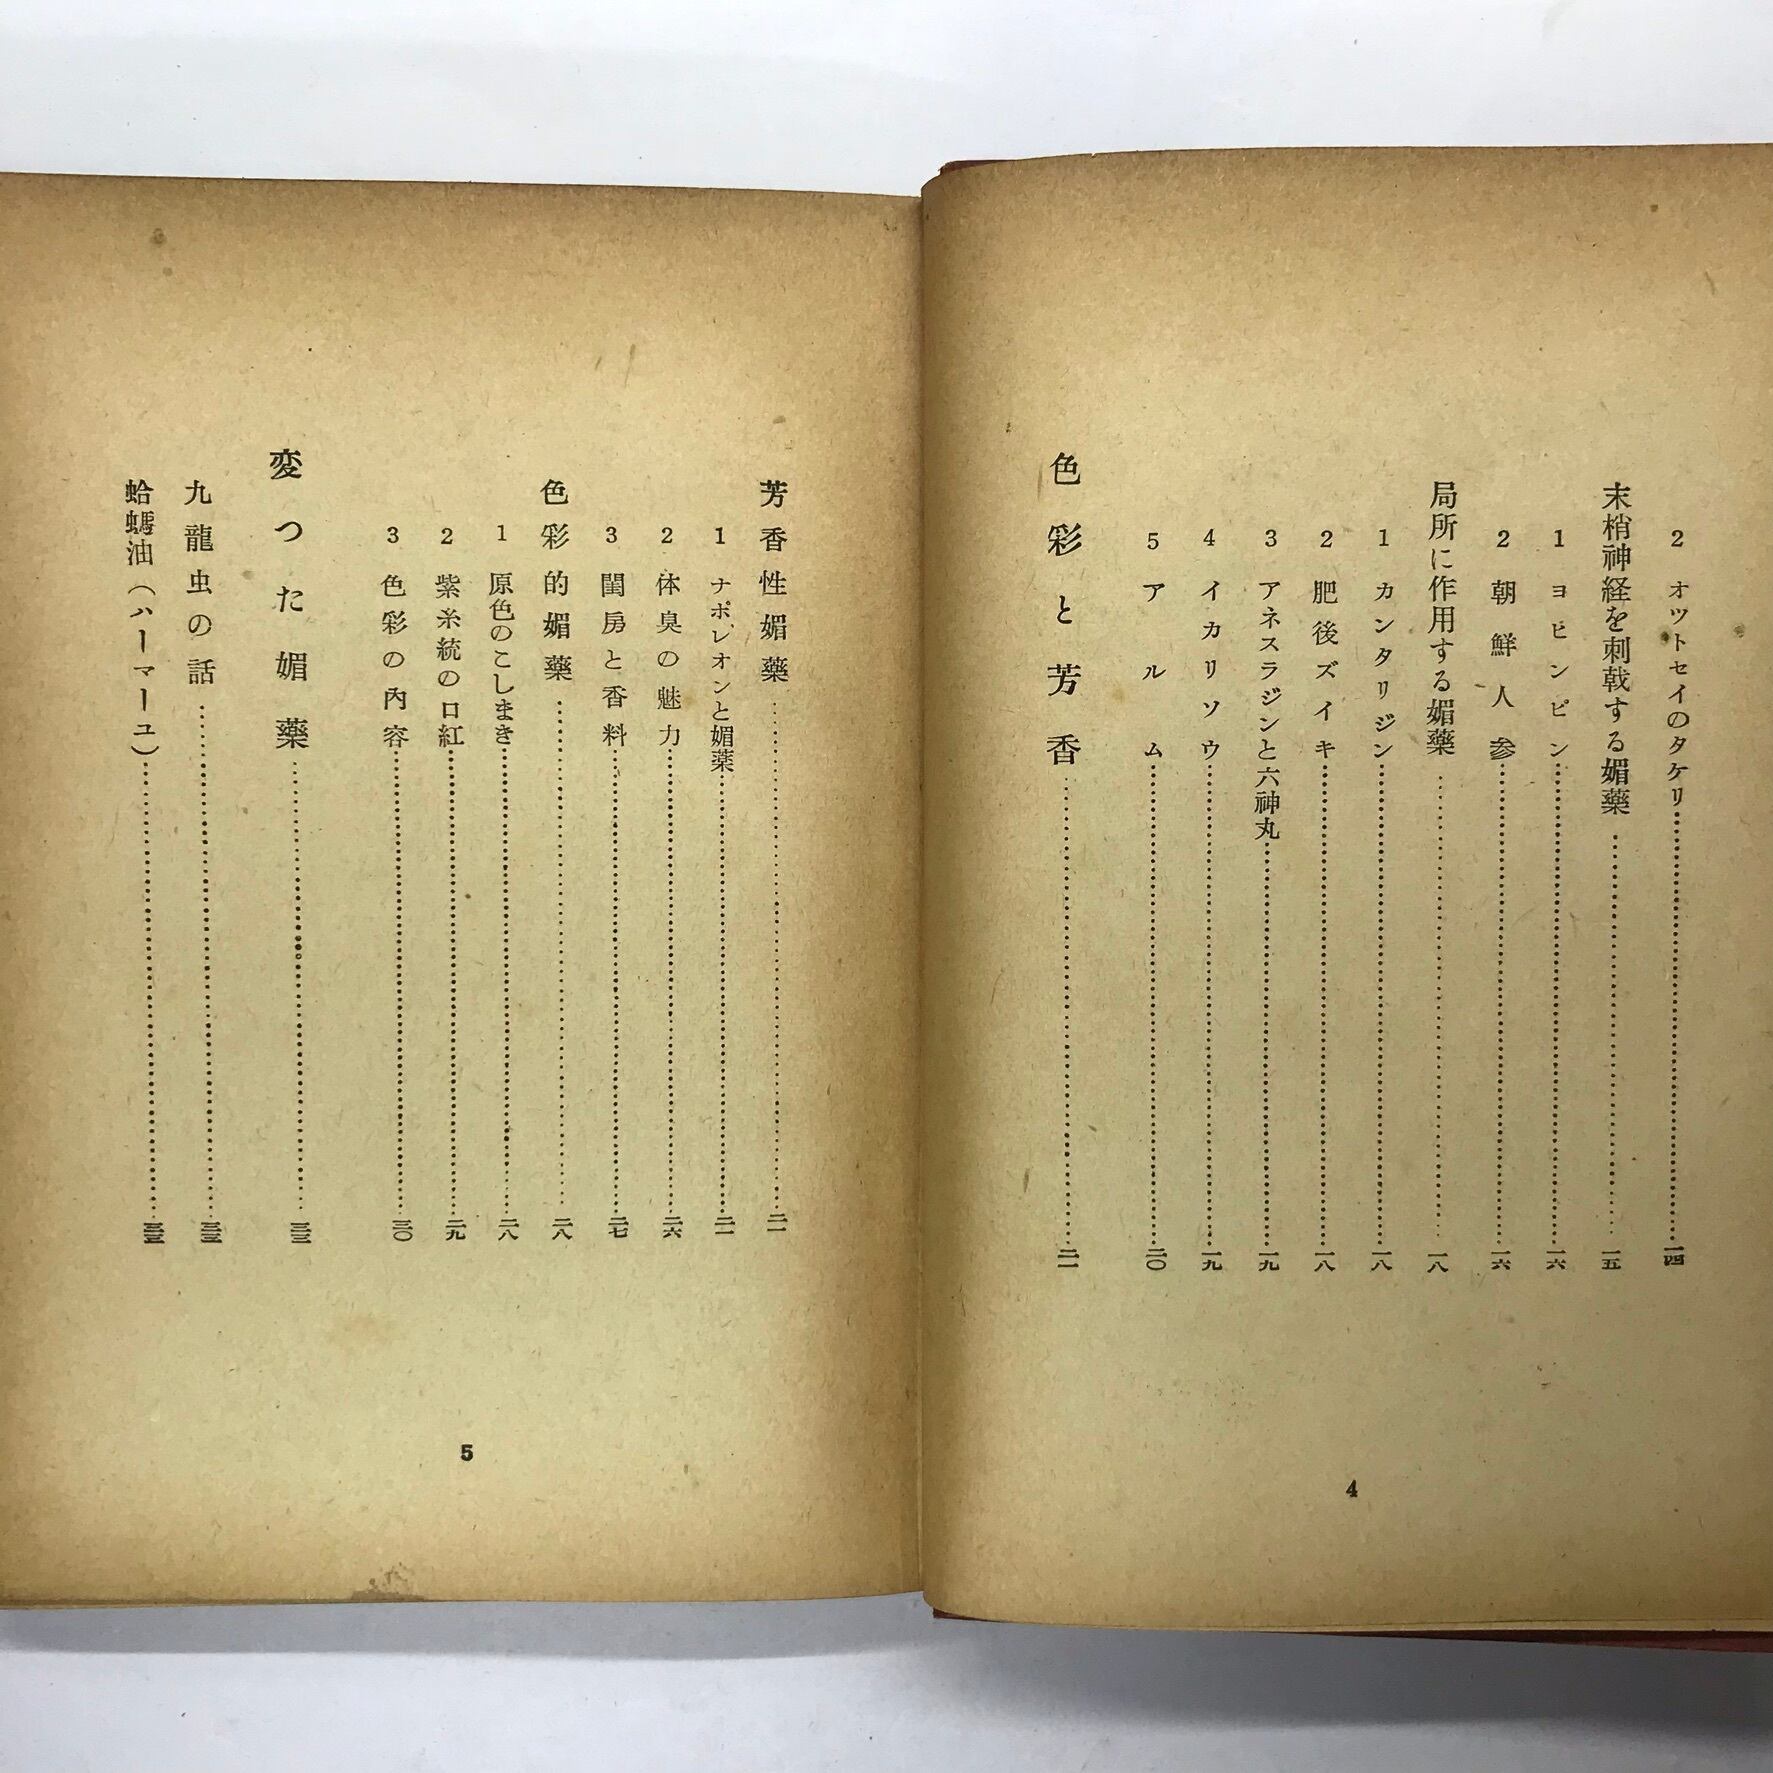 2 オツトセイのタケリ……一四
末梢神経を刺戟する媚藥……一五
1 ヨヒンピン……一六
2 朝鮮人参……一六
局所に作用する媚藥……一八
1 カンタリジン……一八
2 肥後ズイキ……一八
3 アネスラジンと六神丸……一九
4 イカリソウ……一九
5 アルム……二〇
色彩と芳香……二一
4
芳香性媚藥……二一
1 ナポレオンと媚薬……二一
2 体臭の魅力……二六
3 閨房と香料……二七
色彩的媚藥……二八
1 原色のこしまき……二八
2 紫糸統の口紅……二九
3 色彩の內容……三〇
変つた媚藥……三三
九龍虫の話……三三
蛤蟆油（ハーマーユ）……三五
5